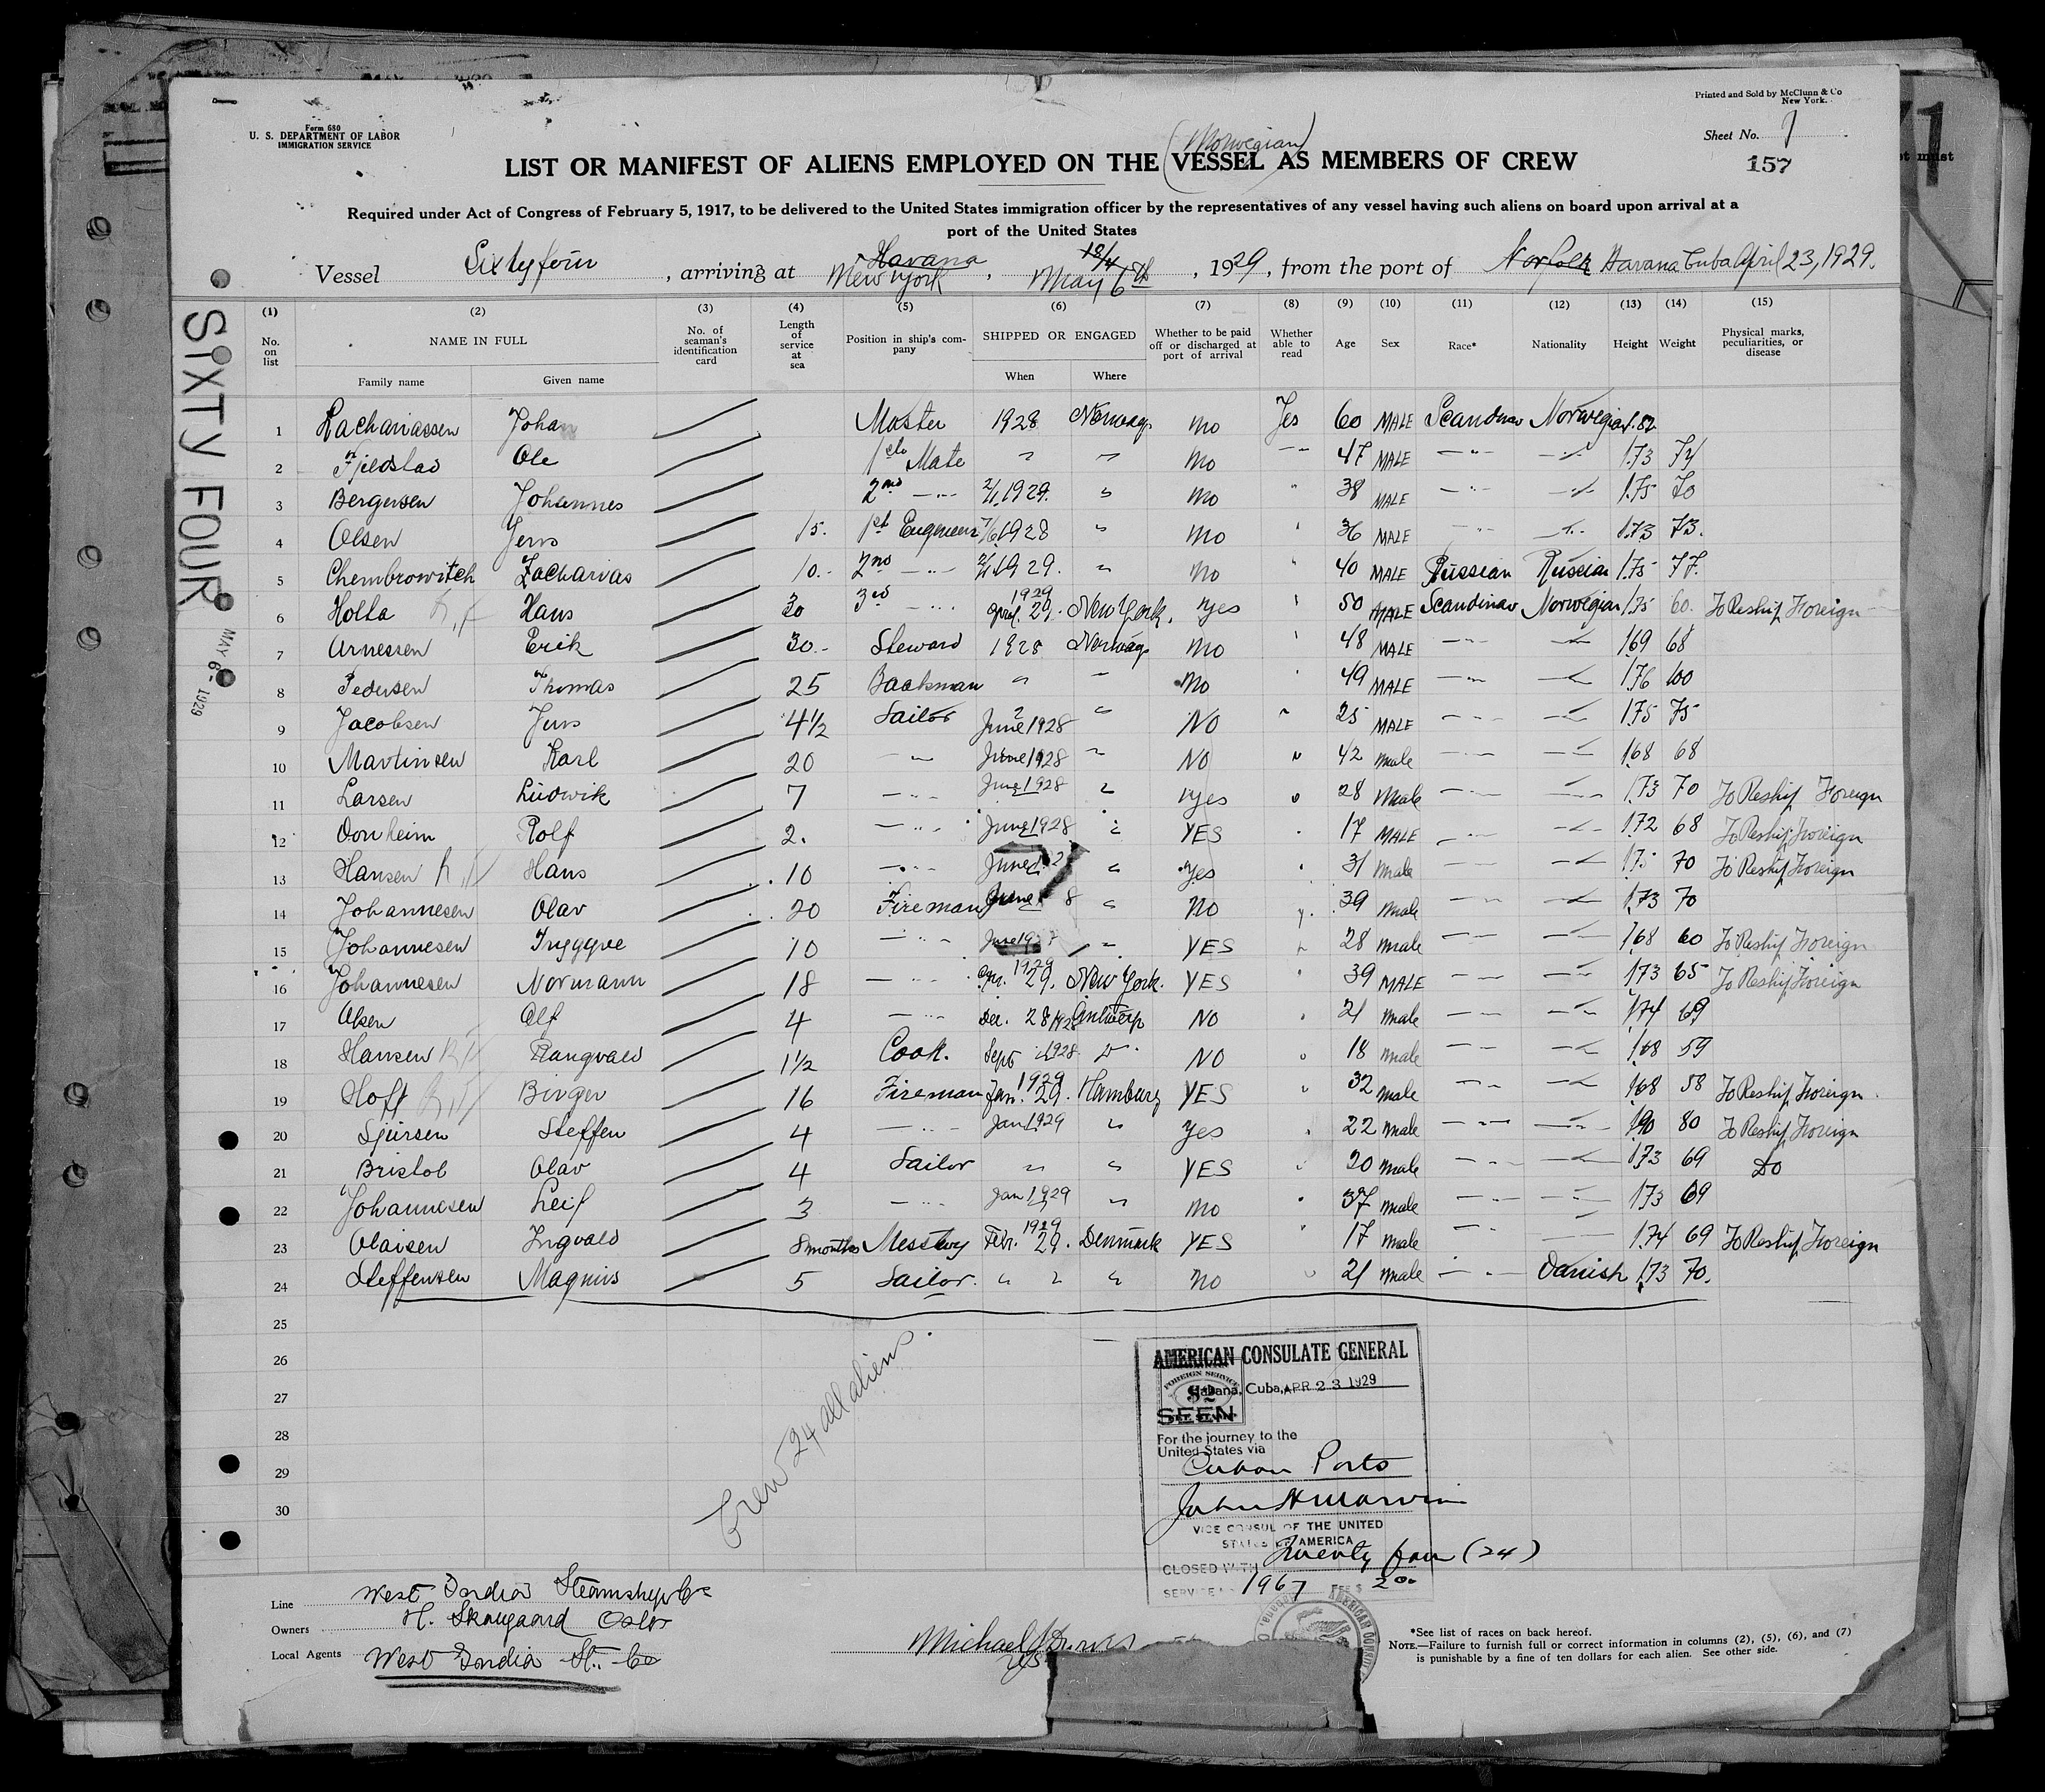 Printed and Sold by McClunn & Co
New York.
Form 680
U. S. DEPARTMENT OF LABOR
IMMIGRATION SERVICE
Sheet No.
157
(Norwegian)
LIST OR MANIFEST OF ALIENS EMPLOYED ON THE VESSEL AS MEMBERS OF CREW
Required under Act of Congress of February 5, 1917, to be delivered to the United States immigration officer by the representatives of any vessel having such aliens on board upon arrival at a
port of the United States
Havana 18/4
Vessel Sixtyfour, arriving at New York, May 6th, 1929, from the port of Norfolk Havana Cuba April 23, 1929.
SIXTY FOUR
MAY 6 - 1929
(1) (2) (3) (4) (5) (6) (7) (8) (9) (10) (11) (12) (13) (14) (15)
No. on list NAME IN FULL No. of seaman's identification card Length of service at sea Position in ship's company SHIPPED OR ENGAGED Whether to be paid off or discharged at port of arrival Whether able to read Age Sex Race* Nationality Height Weight Physical marks, peculiarities, or disease
Family name Given name When Where
1 Zachariassen Johan Master 1928 Norway No Yes 60 MALE Scandinav Norwegian 1.82
2 Fjeldstad Ole 1ch Mate " " No " 47 MALE " " 1.73 74
3 Bergersen Johannes 2nd " 1929. " No " 38 MALE " " 1.75 70
4 Olsen Jens 15. 1st Engineer 1928 " No " 36 MALE " " 1.73 73.
5 Chembrowitch Zacharias 10. 2nd " 1929. " No " 40 MALE Russian Russian 1.75 77.
6 Holta Hans 30 3rd " 1929 29. New York. Yes " 50 MALE Scandinav Norwegian 1.75 60. To Reship Foreign
7 Arnessen Erik 30 Steward 1928 Norway No " 48 MALE " " 1.69 68
8 Pedersen Thomas 25 Baatsman " " No " 49 MALE " " 1.76 100
9 Jacobsen Jens 4 1/2 Sailor June 1928 " NO " 25 MALE " " 1.75 75
10 Martinsen Karl 20 " June 1928 " NO " 42 Male " " 1.68 68
11 Larsen Ludwik 7 " June 1928 " Yes " 28 Male " " 1.73 70 To Reship Foreign
12 Dornheim Rolf 2. " June 1928 " YES " 17 MALE " " 1.72 68 To Reship Foreign
13 Hansen Hans 10 " June " Yes " 31 Male " " 1.75 70 To Reship Foreign
14 Johannesen Olav 20 Fireman June 8 " NO " 39 Male " " 1.73 70
15 Johannesen Tryggve 10 " June " YES " 28 Male " " 1.68 60 To Reship Foreign
16 Johannesen Normann 18 " 1929 29. New York. YES " 39 MALE " " 1.73 65 To Reship Foreign
17 Olsen Alf 4 " Dec. 28 1928 Antwerp NO " 21 Male " " 1.74 69
18 Hansen Rangvald 1 1/2 Cook. Sept 1928 " NO " 18 Male " " 1.68 59
19 Hoff Birger 16 Fireman Jan. 1929 29. Hamburg YES " 32 Male " " 1.68 58 To Reship Foreign
20 Sjursen Steffen 4 " Jan 1929 " Yes " 22 Male " " 1.90 80 To Reship Foreign
21 Bristol Olav 4 Sailor " " YES " 20 Male " " 1.73 69 Do
22 Johannesen Leif 3 " Jan 1929 " No " 37 Male " " 1.73 69
23 Olaisen Ingvald 8 months Messboy Febr. 1929 29. Denmark YES " 17 Male " " 1.74 69 To Reship Foreign
24 Steffensen Magnus 5 Sailor. " " " No " 21 Male " Danish 1.73 70.
25
26
27
28
29
30
Crew 24 all aliens
AMERICAN CONSULATE GENERAL
FOREIGN SERVICE
$2
Habana, Cuba, APR 23 1929
SEEN
For the journey to the
United States via
Cuban Ports
John H Marvin
VICE CONSUL OF THE UNITED
STATES OF AMERICA
CLOSED WITH Twenty four (24)
SERVICE No. 1967 FEE $ 2.00
Line West India Steamship Co
Owners H. Skougaard Oslo
Local Agents West India St. Co
*See list of races on back hereof.
NOTE.—Failure to furnish full or correct information in columns (2), (5), (6), and (7)
is punishable by a fine of ten dollars for each alien. See other side.